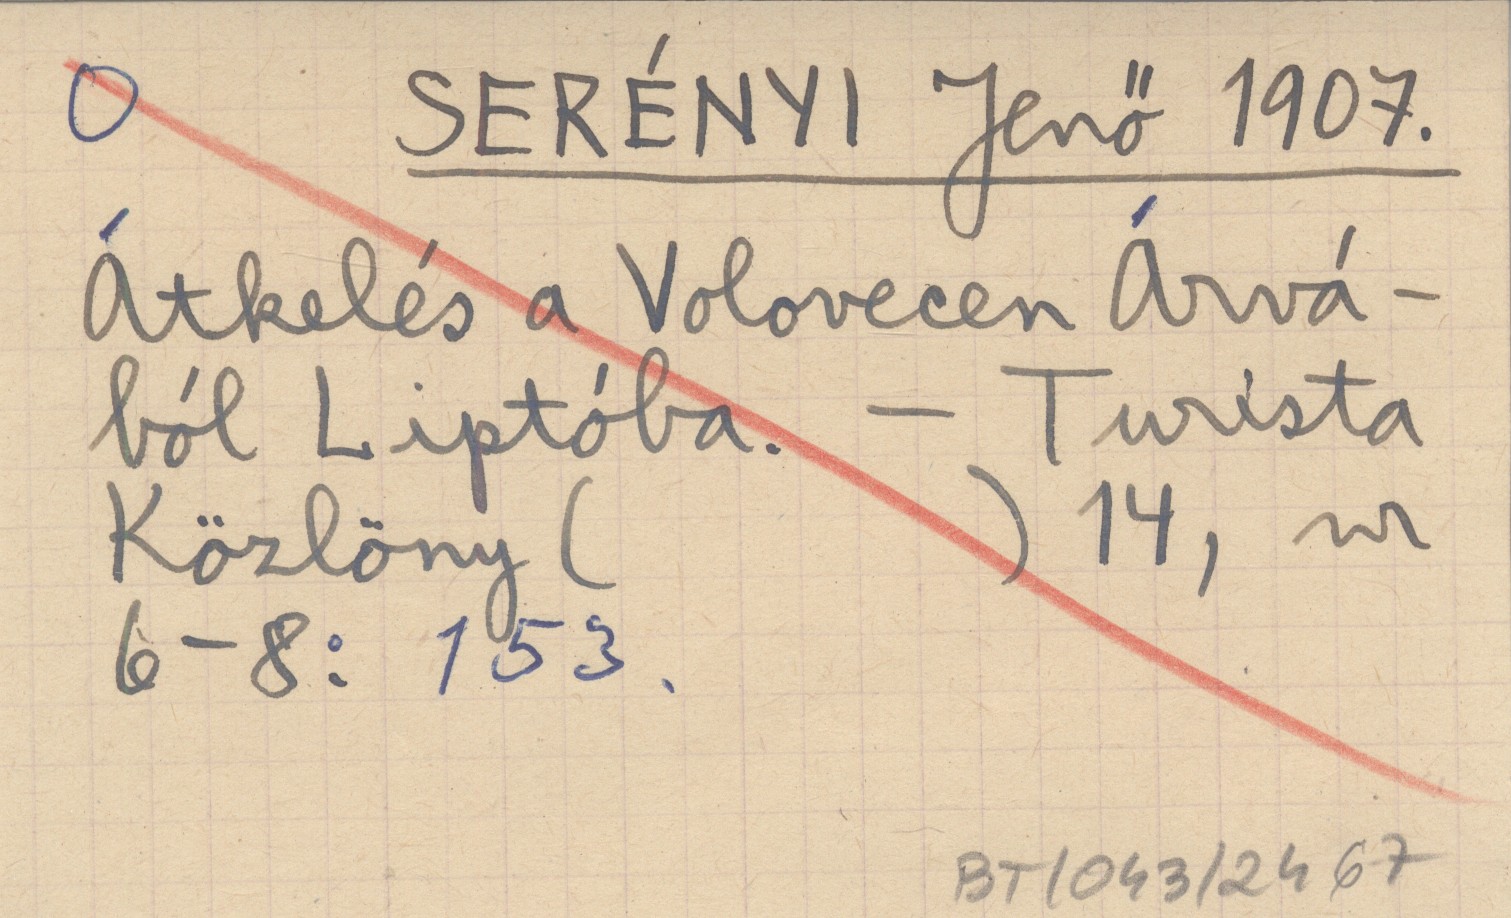 O SERÉNYI Jenő 1907.
Átkelés a Volovecen Árvá-
ból Liptóba. — Turista
Közlöny (          ) 14, nr
6-8: 153.
BT/043/2467